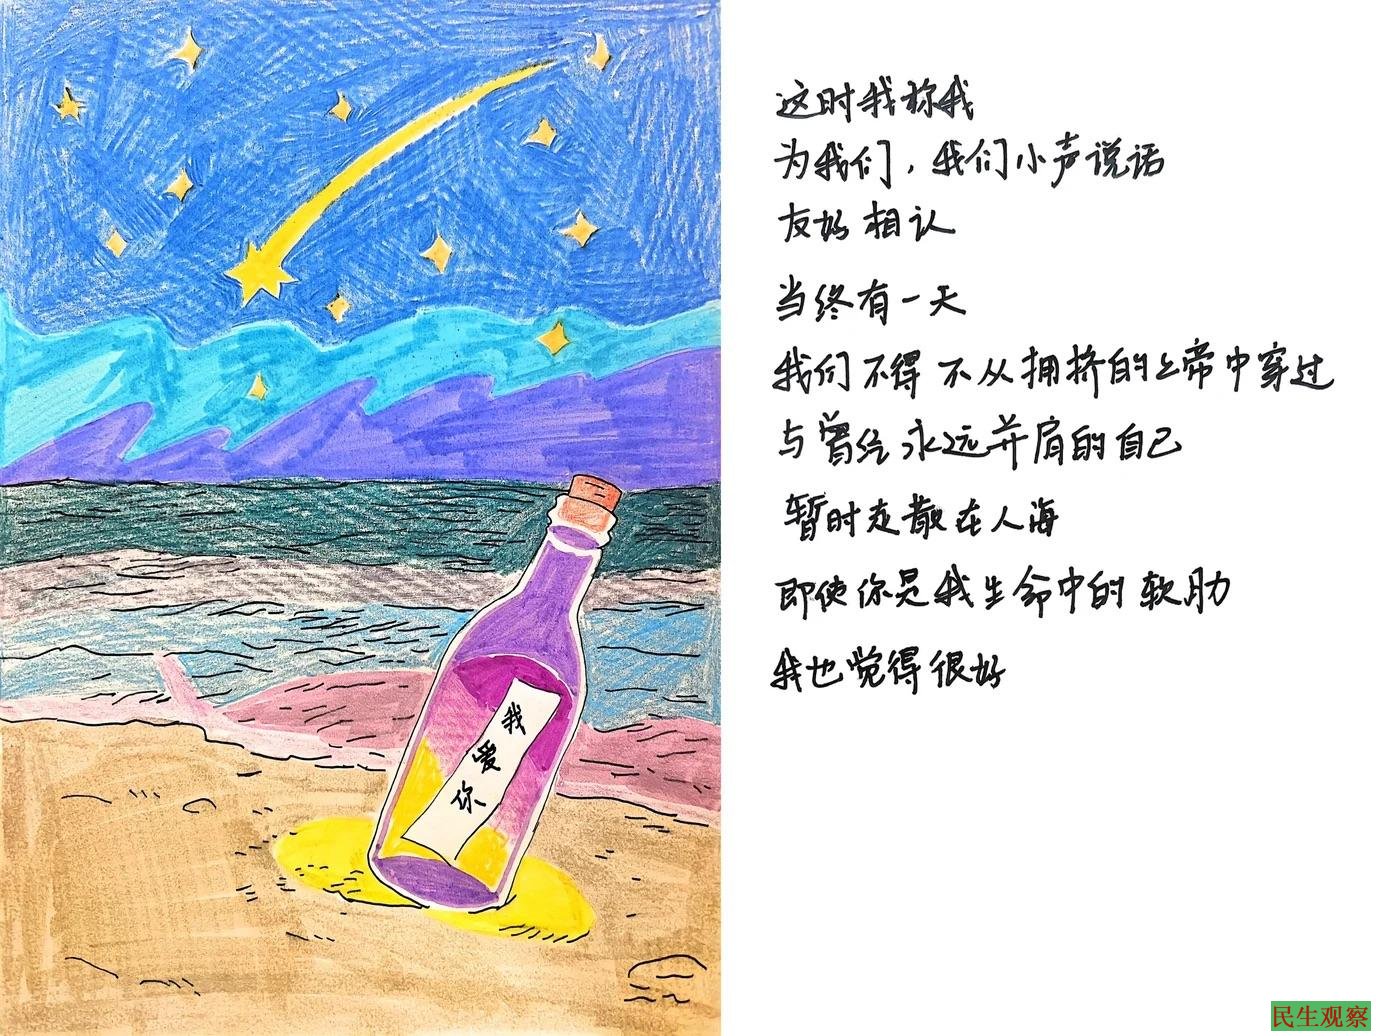 我
爱
你
这时我称我
为我们，我们小声说话
友好相认
当终有一天
我们不得不从拥挤的上帝中穿过
与曾经永远并肩的自己
暂时走散在人海
即使你是我生命中的软肋
我也觉得很好
民生观察